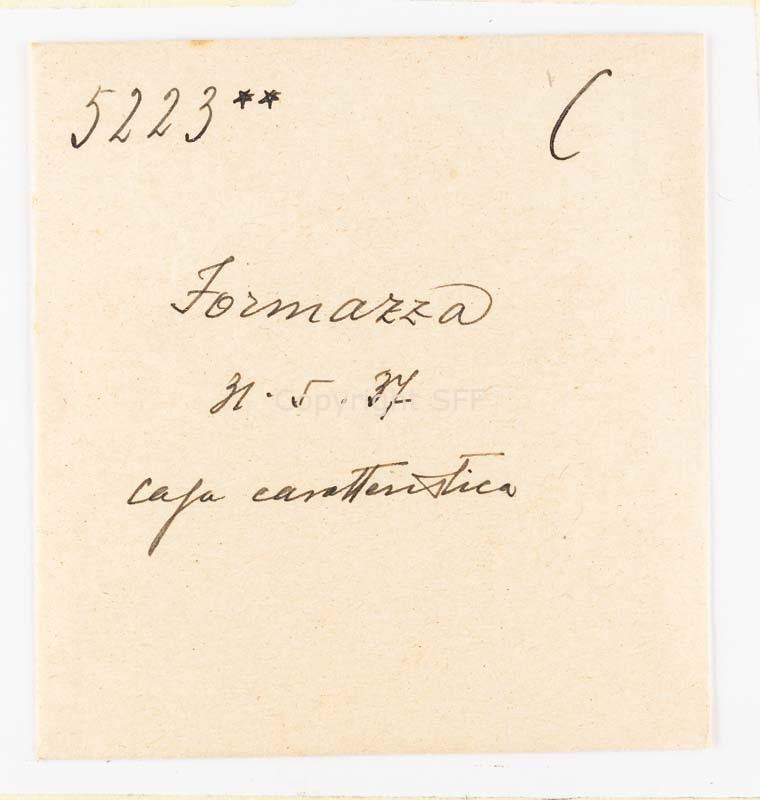 5223** C
Formazza
31.5.37
casa caratteristica
Copyright SFF